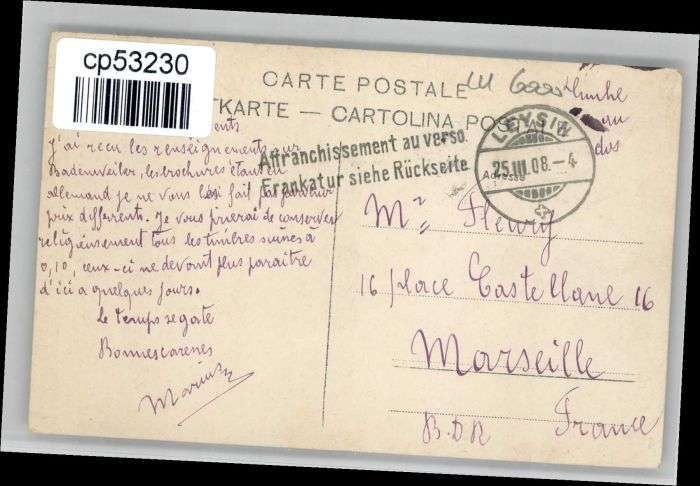 cp53230
CARTE POSTALE
TKARTE — CARTOLINA POSTALE
timbre
au
dos
Affranchissement au verso.
Frankatur siehe Rückseite
LEYSIN
25.III.08.-4
Adresse
J'ai reçu les renseignements sur
Badenveiler, les brochures étant en
allemand je ne vous les ai fait parvenir
prix différents. Je vous prierai de conserver
religieusement tous les timbres suisses à
0,10, ceux-ci ne devant plus paraître
d'ici à quelques jours.
Le temps se gate
Bonnes caresses
Marius
Mr Fleury
16 place Castellane 16
Marseille
B.D.R France